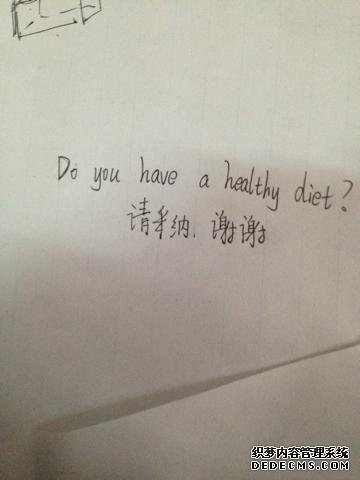 Do you have a healthy diet?
请采纳.谢谢
织梦内容管理系统
DEDECMS.COM